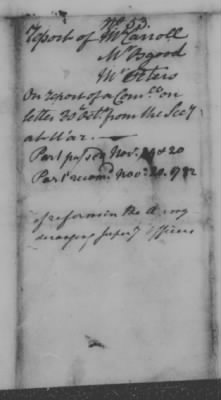 No. 53.
Report of Mr Carroll
Mr Osgood
Mr Peters
On report of a Comee. on
letter 30 Octr. from the Secy
at War
Part passed Novr. 19 & 20
Part recomd. Novr. 20. 1782
of reform in the Army
Officers